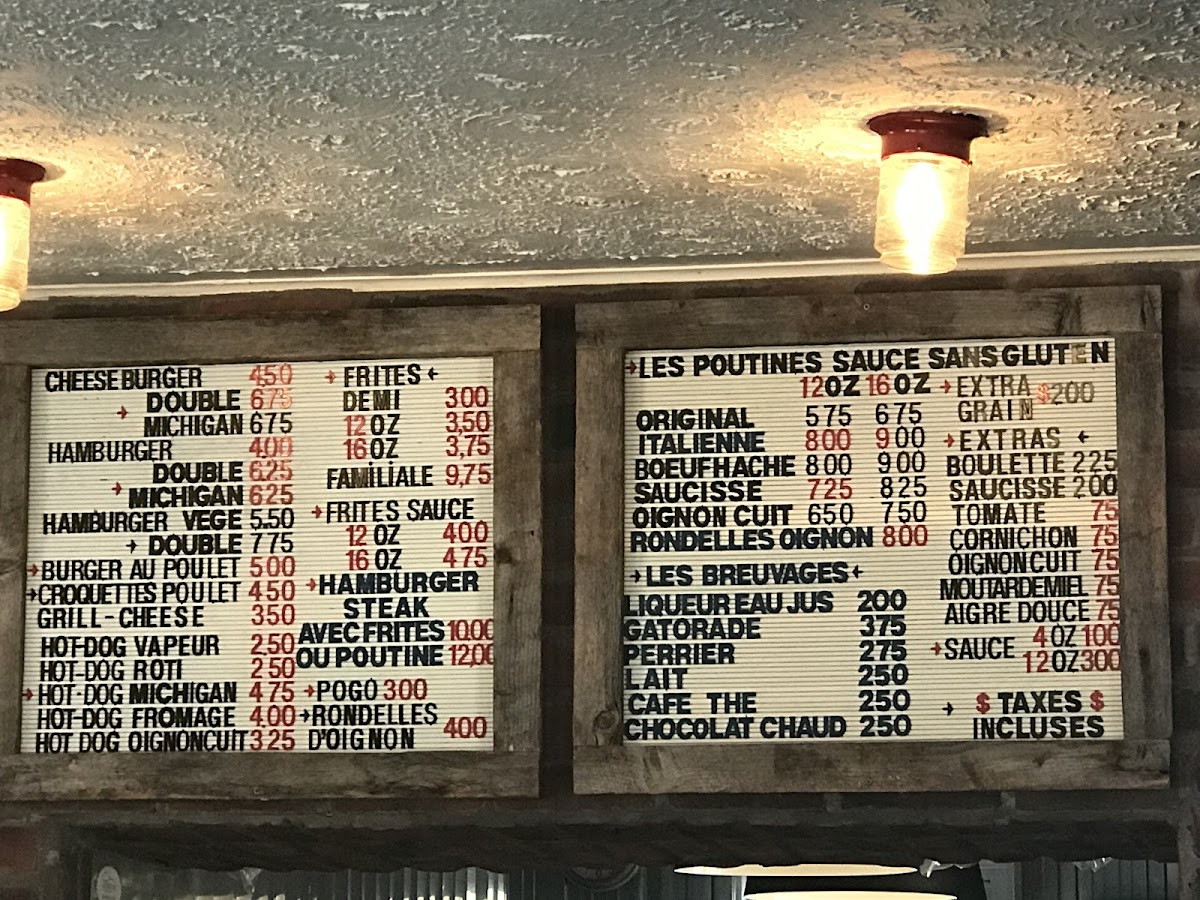 CHEESEBURGER 450
→ DOUBLE 675
MICHIGAN 675
HAMBURGER 400
→ DOUBLE 625
MICHIGAN 625
HAMBURGER VEGE 5.50
→ DOUBLE 775
→BURGER AU POULET 500
→CROQUETTES POULET 450
GRILL-CHEESE 350
HOT-DOG VAPEUR 2.50
HOT-DOG ROTI 250
→HOT-DOG MICHIGAN 475
HOT-DOG FROMAGE 4.00
HOT DOG OIGNONCUIT 325
→ FRITES ←
DEMI 300
12 OZ 3,50
16 OZ 3,75
FAMILIALE 9,75
→FRITES SAUCE
12 OZ 400
16 OZ 475
→HAMBURGER
STEAK
AVEC FRITES 10.00
OU POUTINE 12,00
→POGO 300
→RONDELLES
D'OIGNON 400
→LES POUTINES SAUCE SANS GLUTEN
12OZ 16OZ
ORIGINAL 575 675
ITALIENNE 800 900
BOEUFHACHE 800 900
SAUCISSE 725 825
OIGNON CUIT 650 750
RONDELLES OIGNON 800
→LES BREUVAGES←
LIQUEUR EAU JUS 200
GATORADE 375
PERRIER 275
LAIT 250
CAFE THE 250
CHOCOLAT CHAUD 250
→EXTRA $200
GRAIN
→EXTRAS ←
BOULETTE 225
SAUCISSE 200
TOMATE 75
CORNICHON 75
OIGNONCUIT 75
MOUTARDEMIEL 75
AIGRE DOUCE 75
→SAUCE 4OZ 100
12OZ 300
→ $ TAXES $
INCLUSES